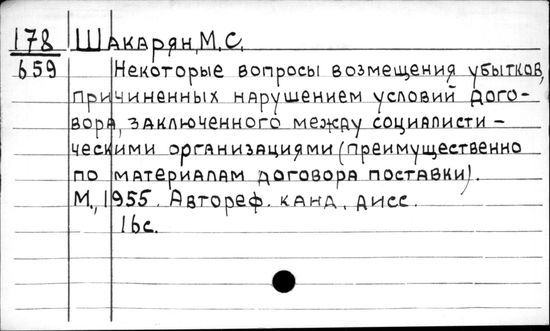 178 Шакарян, М.С.
659 Некоторые вопросы возмещения убытков,
причиненных нарушением условий дого-
вора, заключенного между социалисти-
ческими организациями (преимущественно
по материалам договора поставки).
М., 1955. Автореф. канд. дисс.
16с.